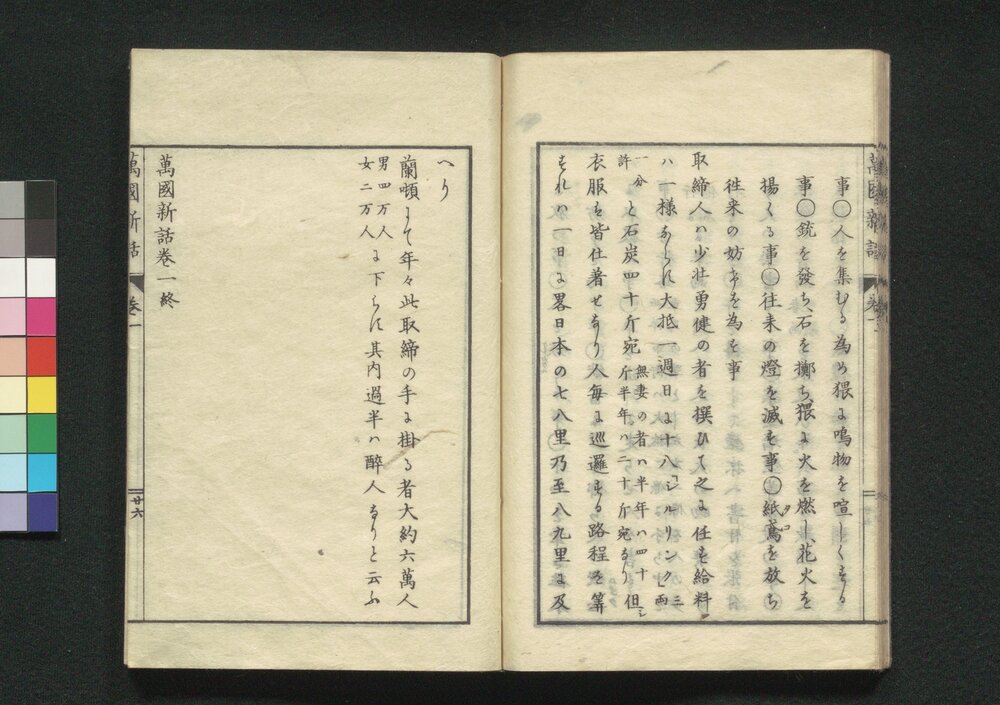 事〇人を集むる為め猥に鳴物を喧しくする
事〇銃を發ち、石を擲ち、猥に火を燃し、花火を
揚くる事〇往来の燈を滅す事〇紙鳶を放ち
タコ
往来の妨害を為す事
取締人ハ少壮勇健の者を撰ひて之に任す給料
ハ一様ならす大抵一週日に十八「シルリンク」三両
一分許と石炭四十斤宛無妻の者ハ半年ハ四十斤半年ハ二十斤宛なり但し
衣服は皆仕着せなり人毎に巡邏する路程を算
すれハ一日に畧日本の七八里乃至八九里に及
へり
蘭頓にて年々此取締の手に掛る者大約六萬人
男四万人女二万人に下らす其内過半ハ醉人なりと云ふ
萬國新話卷一終
萬國新話
卷一
廿六
萬國新話
卷一